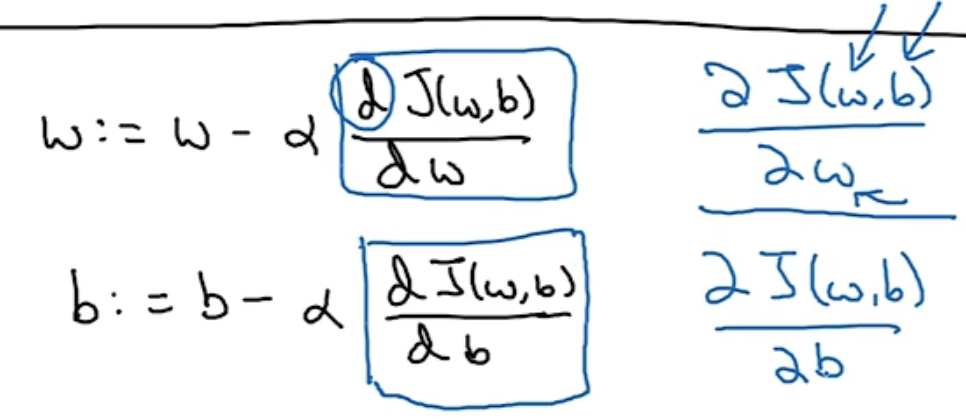 w := w - α dJ(w,b)/dw ∂J(w,b)/∂w
b := b - α dJ(w,b)/db ∂J(w,b)/∂b